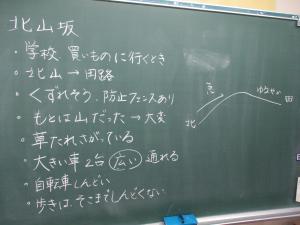 北山坂
・学校 買いものに行くとき
・北山→円路
・くずれそう、防止フェンスあり
・もとは山だった→大変
・草たれさがっている
・大きい車2台 広い 通れる
・自転車しんどい
・歩きは、そこまでしんどくない
北
ゆるやか